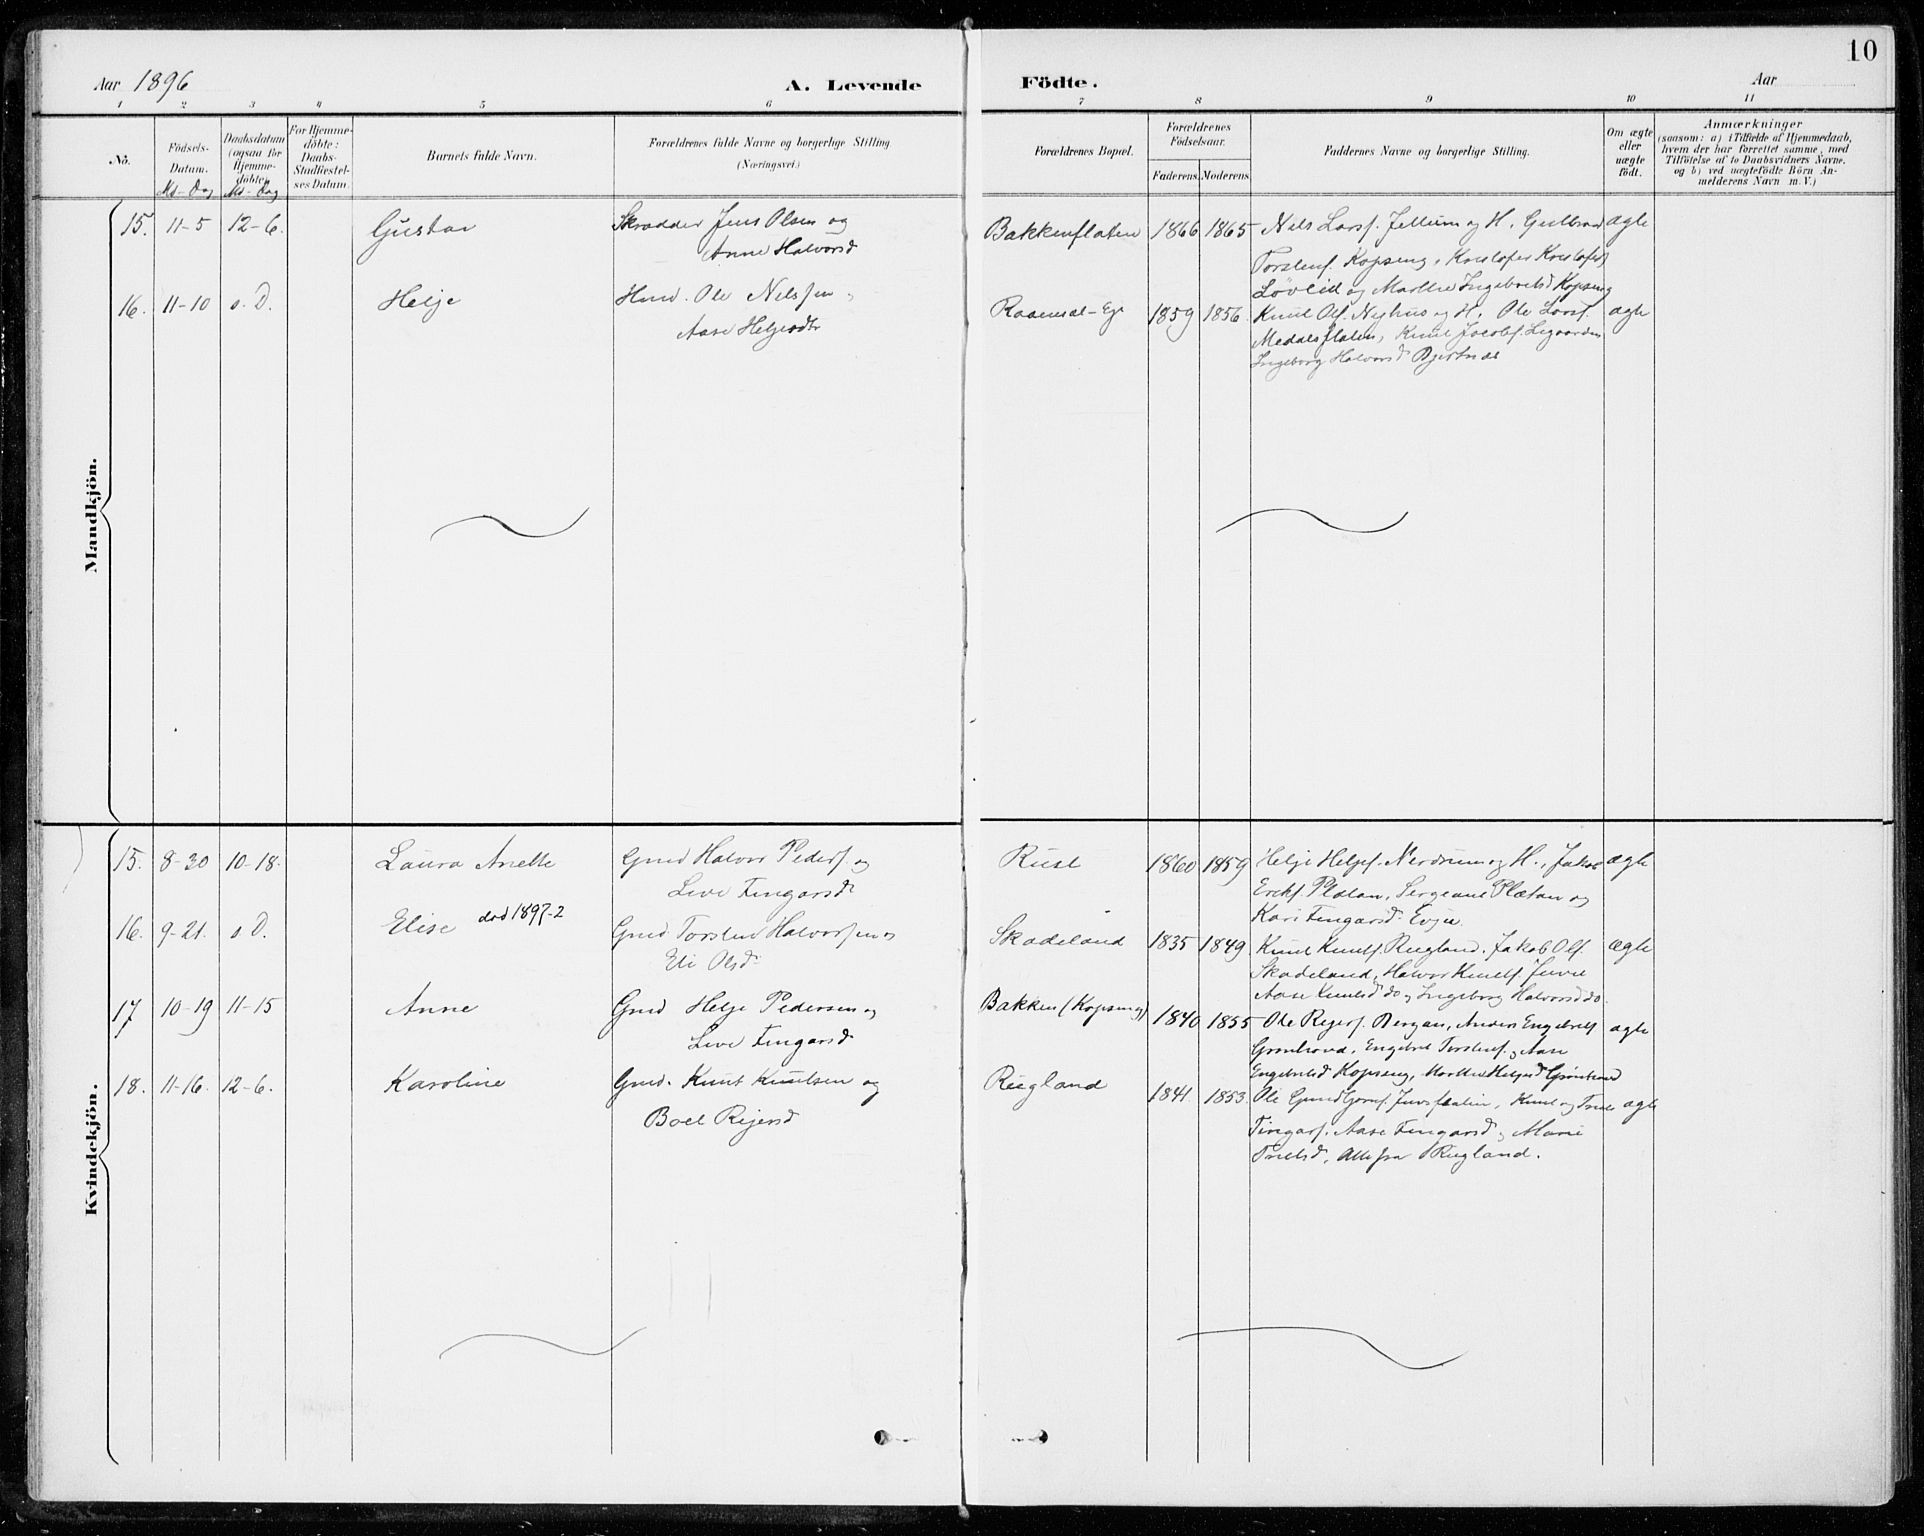 10
Aar 1896
A. Levende
Födte.
Aar
1 2 3 4 5 6 7 8 9 10 11
No.
Födsels-
Datum.
Md - Dag
Daabsdatum
(ogsaa for
Hjemme-
döbte)
Md - Dag
For Hjemme-
döbte:
Daabs-
Stadfæstel-
ses Datum.
Barnets fulde Navn.
Forældrenes fulde Navne og borgerlige Stilling
(Næringsvei.)
Forældrenes Bopæl.
Forældrenes
Födselsaar.
Faderens. Moderens.
Faddernes Navne og borgerlige Stilling.
Om ægte
eller
uægte
födt.
Anmærkninger
(saasom: a) i Tilfælde af Hjemmedaab,
hvem der har forrettet samme, med
Tilföielse af to Daabsvidners Navne.
og b) ved uægtefödte Börn An-
melderens Navn m. V.)
Mandkjön.
15. 11-5 12-6. Gustav
Skrædder Jens Olsen og
Anne Halvorsd
Bakkenflaten 1866 1865
Nils Larsf. Jellum og H, Gulbrand
Torstenf. Kopseng, Kristofer Kristofers
Løvlid og Marthe Ingebretsd Kopseng
ægte
16. 11-10 s. D. Helje
Hmd. Ole Nilssen,
Aase Heljesdtr
1859 1856.
Knut Olf. Nyhus og H, Ole Larsf.
Medalsflaten, Knut Jacobsf.
Ingeborg Halvorsd
ægte
Kvindekjön.
15. 8-30 10-18. Laura Anette
Gmd Halvor Pedersf. og
Live Fingarsd
Rust 1860 1859
Helje Heljesf. Nerdrum og H., Jakob
Eriksf. Plætan, Sergeant Plætan og
Kari Fingarsd Evju.
ægte
16. 9-21. s. D. Elise død 1897-2
Gmd Torsten Halvorsen og
Eli Olsd
Skadeland 1835 1849
Knut Knutsf. Rugland, Jakob Olf.
Skadeland, Halvor Knutsf. Juvet
Aase Knutsd do og Ingeborg Halvorsd do.
ægte
17 10-19 11-15 Anne
Gmd Helje Pedersen og
Live Fingarsd
Bakken (Kopseng) 1840 1855
Ole Reiersf. Bergan, Anders Engebretsf
Grøntrand, Engebret Torstenf., Aase
Engebretsd Kopseng, Marthe Heljesd Grøntrand
ægte
18. 11-16. 12-6. Karoline
Gmd. Knut Knutsen og
Boel Reiersd
Rugland 1841 1853.
Ole Juvsflaten, Knut og Truls
Fingarsf. Aase Fingarsd, Marie
Trulsd, alle fra Rugland.
ægte